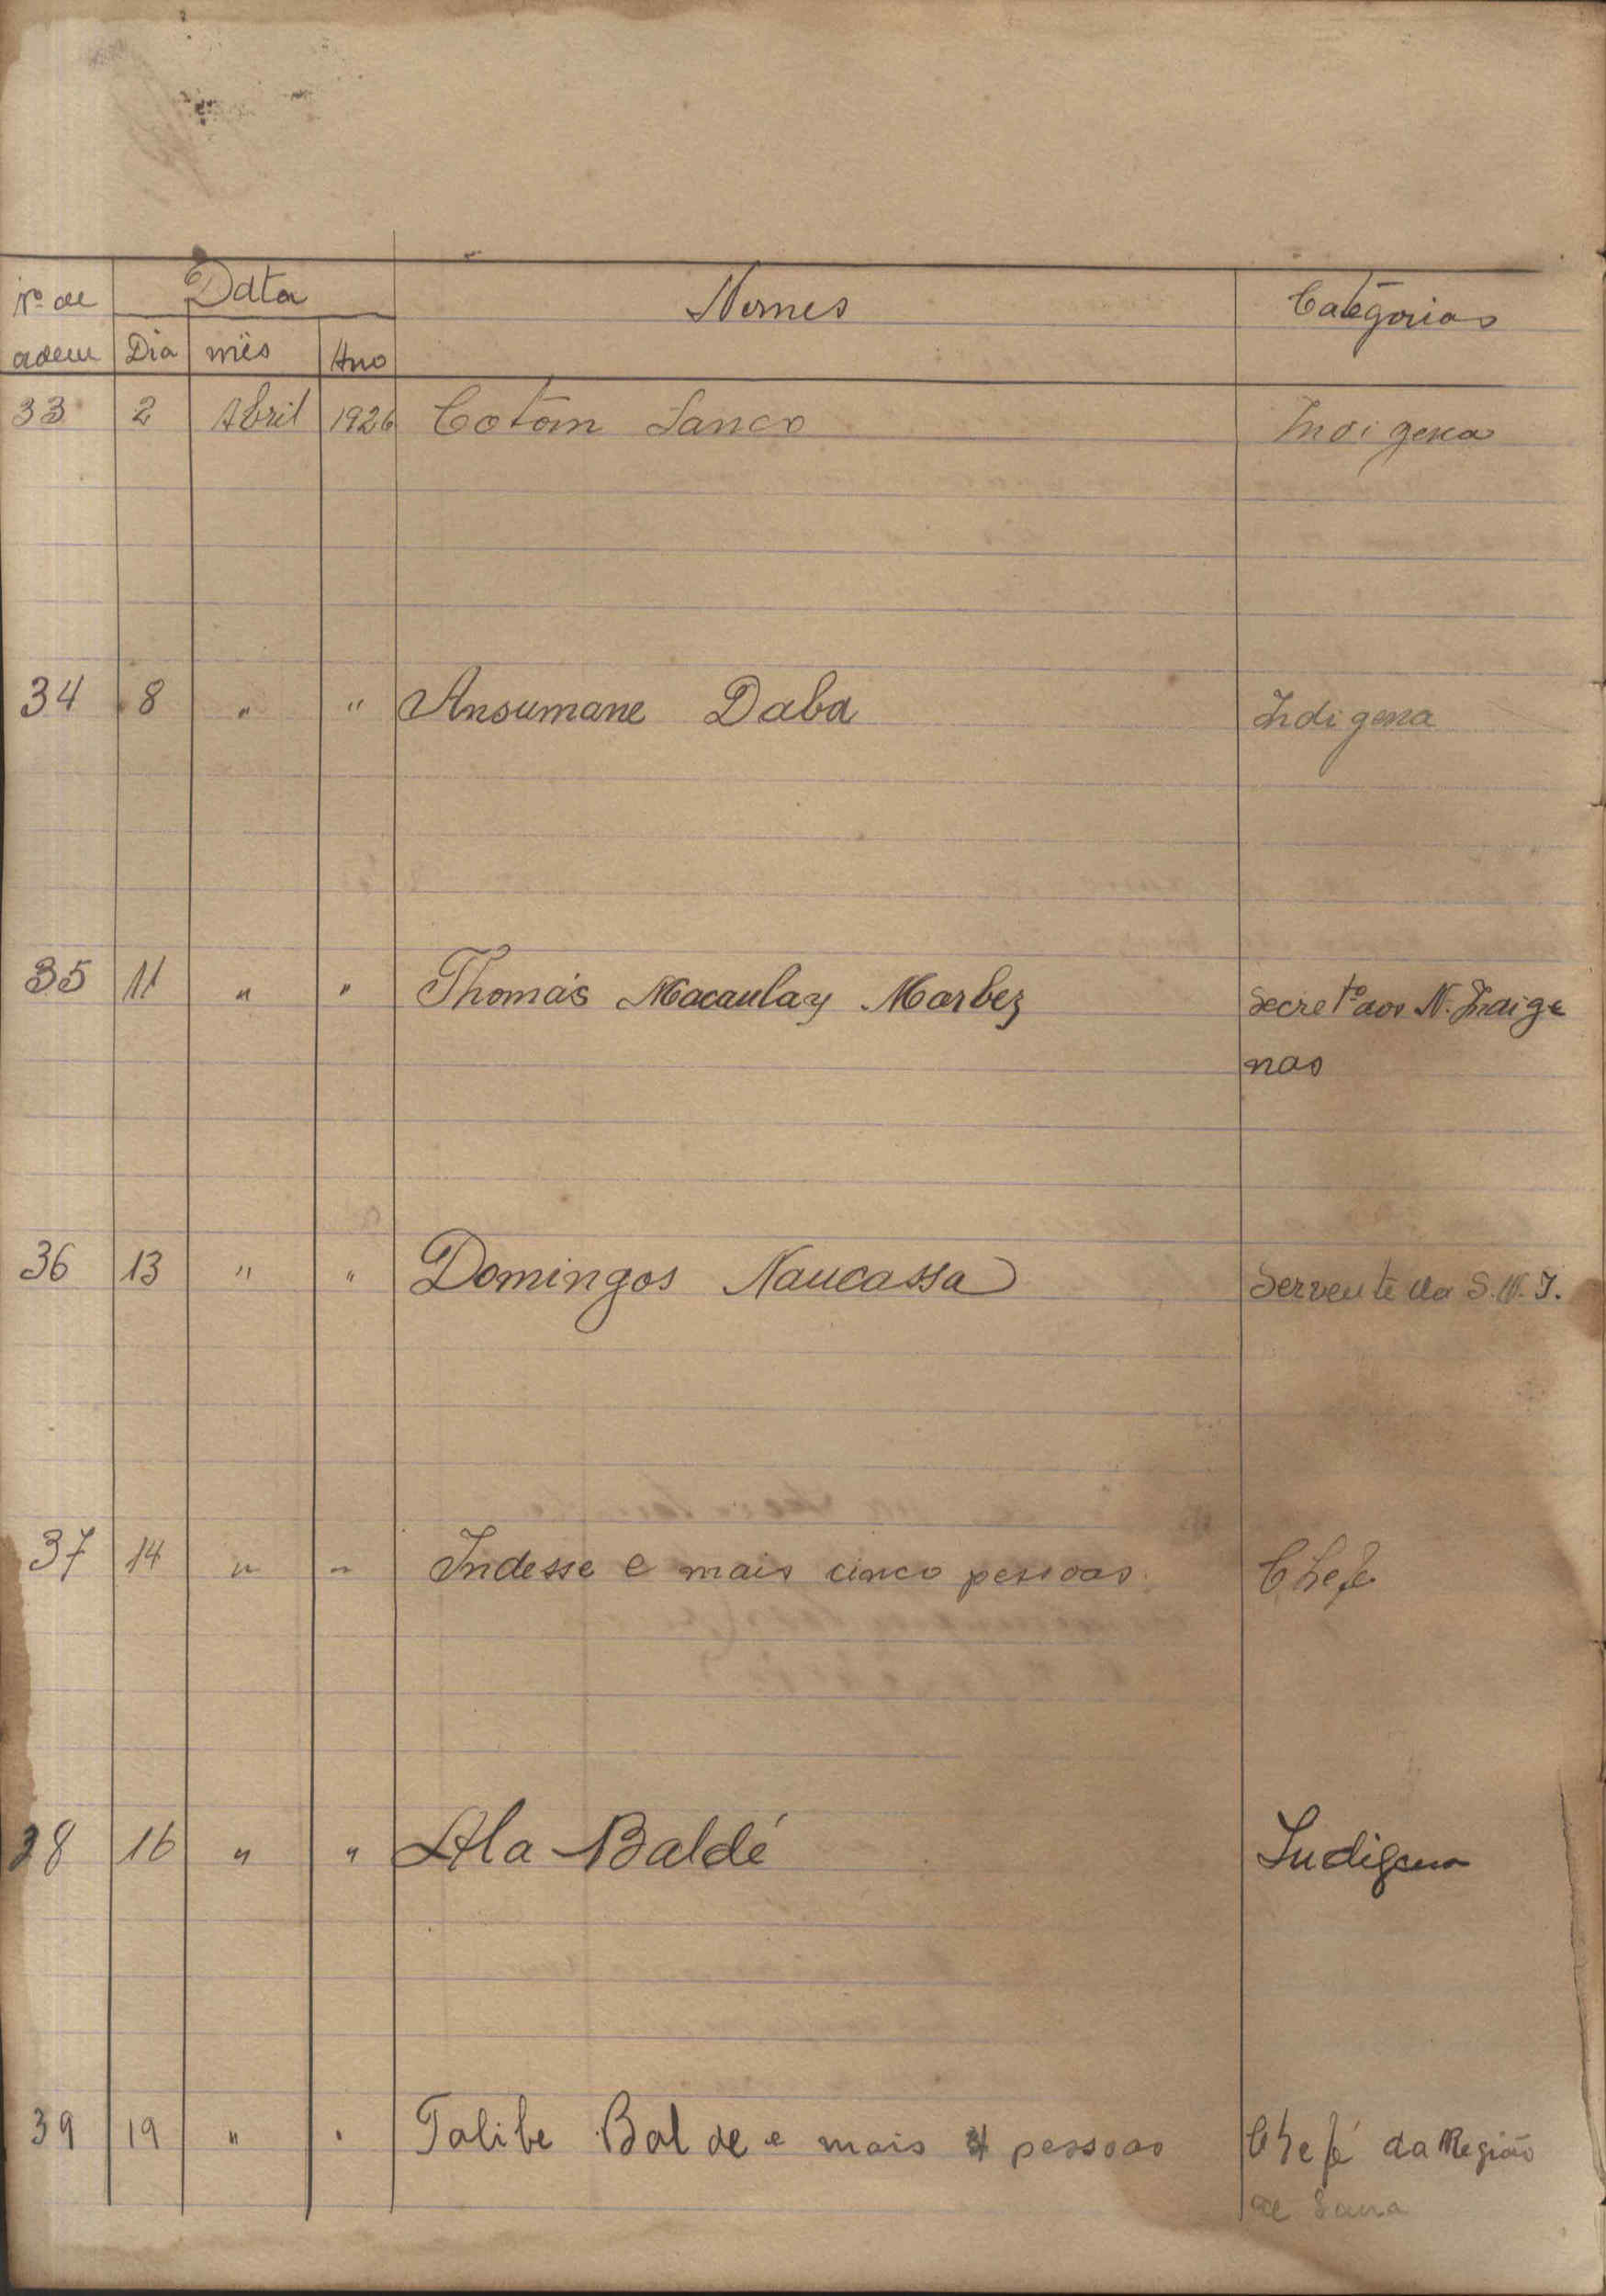 Nº de Data Nomes Categorias
ordem Dia mês Ano
33 2 Abril 1926 Cotom Sanco Indigena
34 8 " " Ansumane Daba Indigena
35 11 " " Thomás Macaulay Marbez Secretº dos N. Indige
nas
36 13 " " Domingos Naucassa Servente da S.N.I.
37 14 " " Indesse e mais cinco pessoas. Chefe
38 16 " " Ala Baldé Indigena
39 19 " " Talibe Balde e mais 4 pessoas Chefé da Região
de